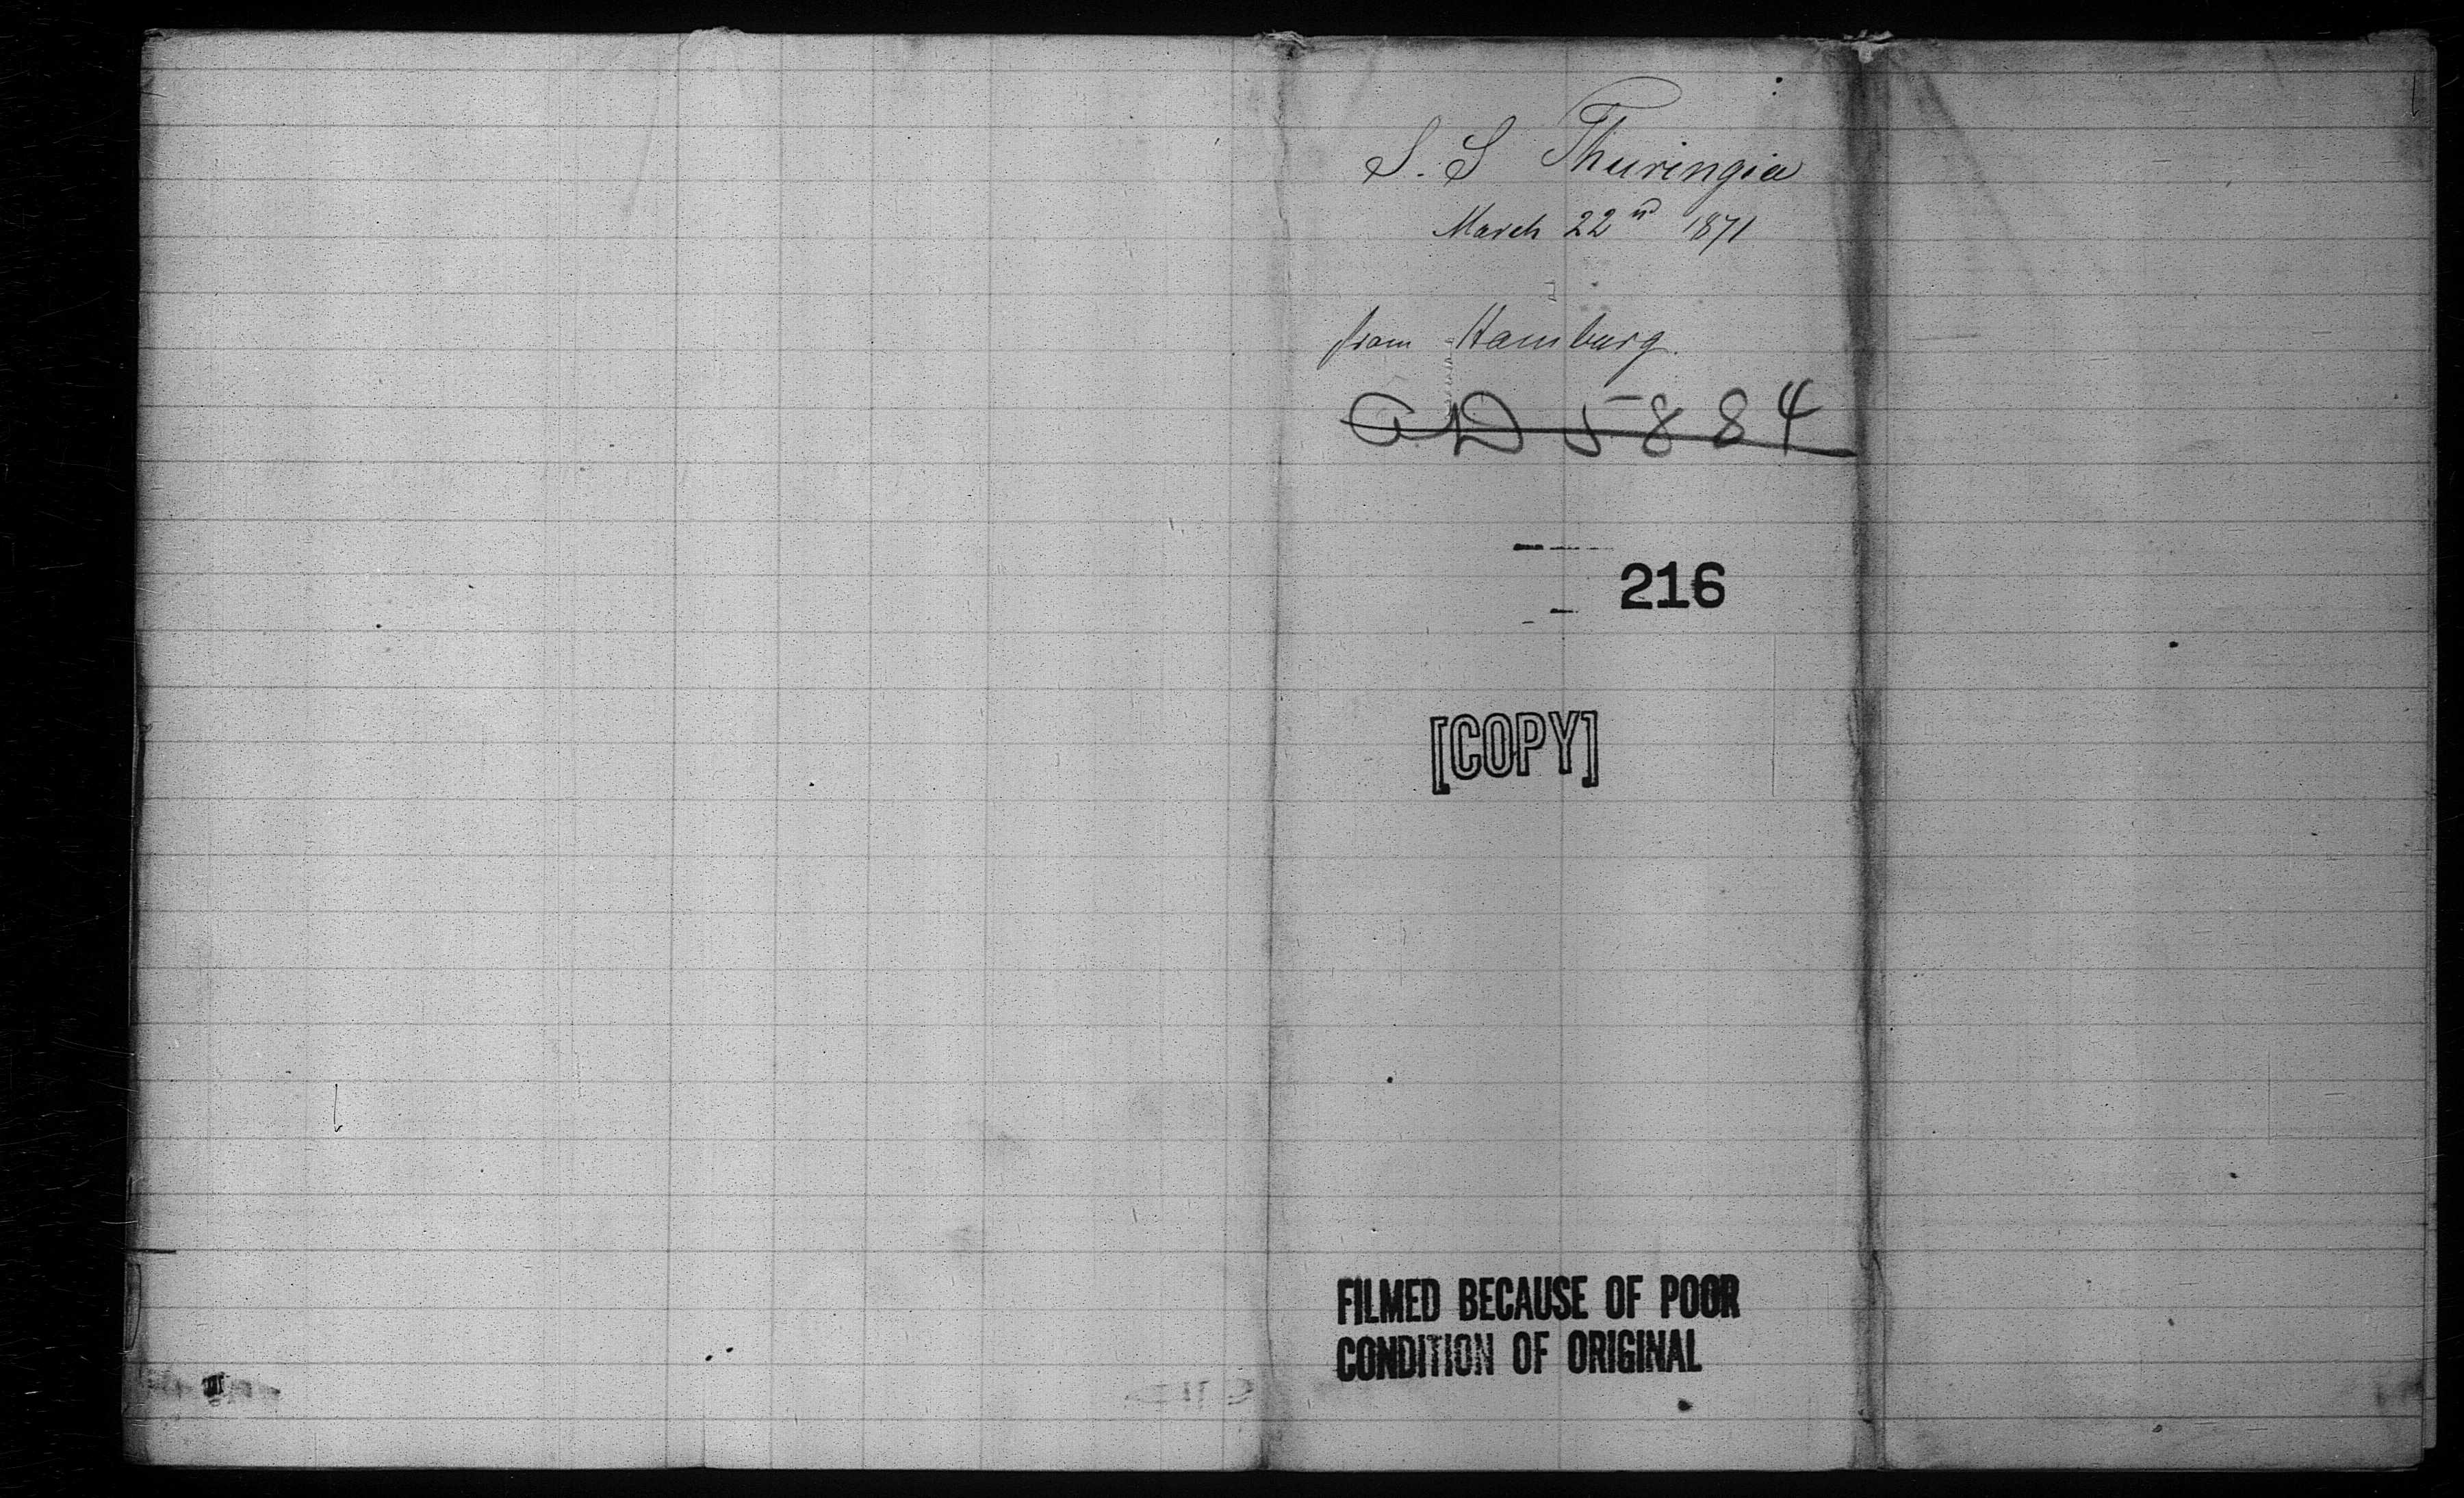 S. S Thuringia
March 22nd 1871
from Hamburg.
CD 5884
216
[COPY]
FILMED BECAUSE OF POOR
CONDITION OF ORIGINAL